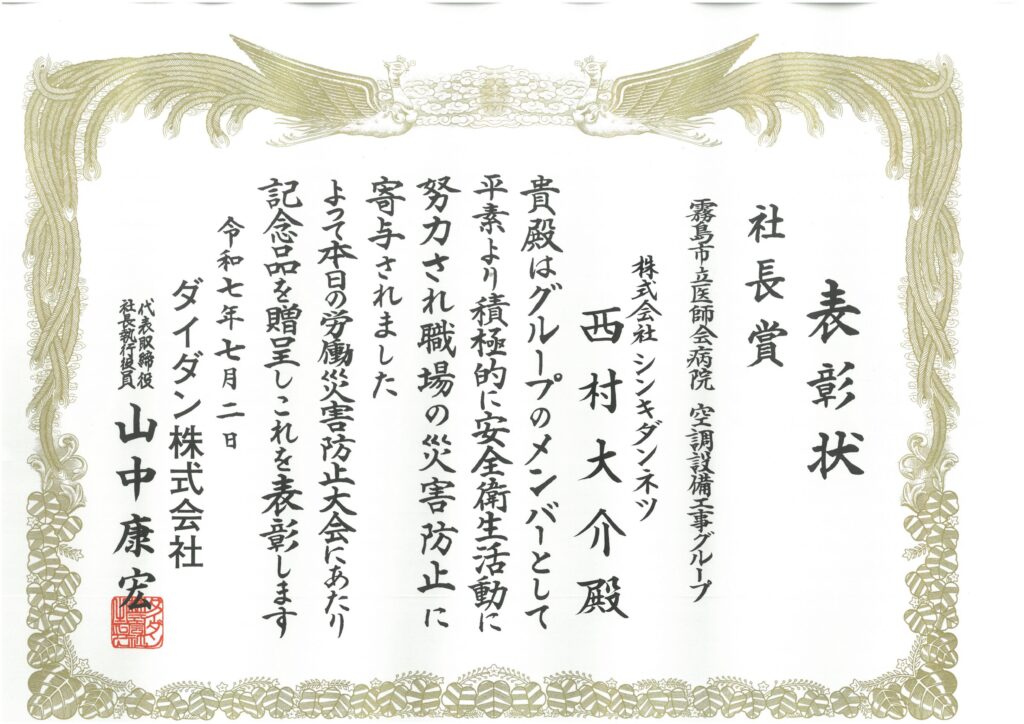 表彰状
社長賞
霧島市立医師会病院 空調設備工事グループ
株式会社 シンキダンネツ
西村大介殿
貴殿はグループのメンバーとして
平素より積極的に安全衛生活動に
努力され職場の災害防止に
寄与されました
よって本日の労働災害防止大会にあたり
記念品を贈呈しこれを表彰します
令和七年七月二日
ダイダン株式会社
代表取締役
社長執行役員
山中康宏